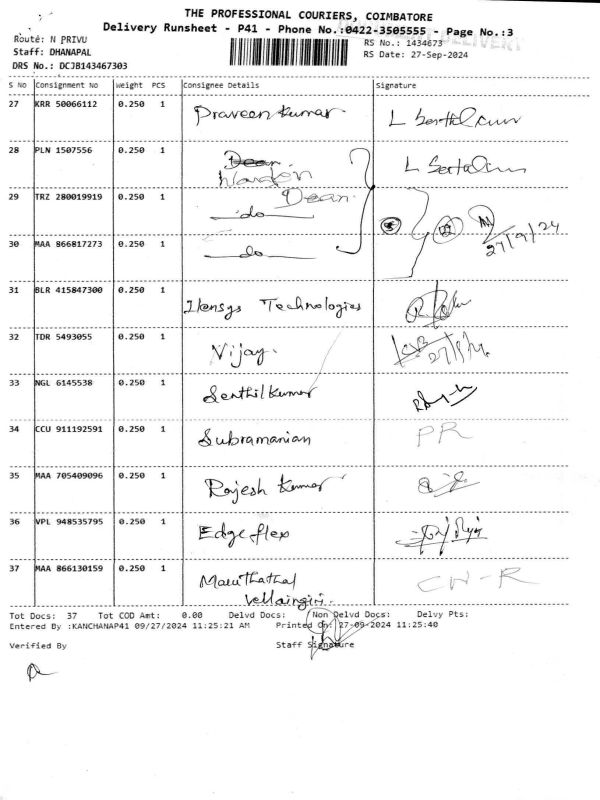 THE PROFESSIONAL COURIERS, COIMBATORE
Delivery Runsheet - P41 - Phone No.:0422-3505555 - Page No.:3
Route: N PRIVU
RS No.: 1434673
Staff: DHANAPAL
RS Date: 27-Sep-2024
DRS No.: DCJB143467303
S No Consignment No Weight PCS Consignee Details Signature
27 KRR 50066112 0.250 1 Praveen Kumar
28 PLN 1507556 0.250 1 Dean
Warden
29 TRZ 280019919 0.250 1 Dean
do
30 MAA 866817273 0.250 1 do
27/9/24
31 BLR 415847300 0.250 1 Technologies
32 TDR 5493055 0.250 1 Vijay.
33 NGL 6145538 0.250 1 Senthil Kumar
34 CCU 911192591 0.250 1 Subramanian PR
35 MAA 705409096 0.250 1 Rajesh Kumar
36 VPL 948535795 0.250 1 Edgeflex
37 MAA 866130159 0.250 1 Maruthathal CW-R
Vellaingiri
Tot Docs: 37 Tot COD Amt: 0.00 Delvd Docs: Non Delvd Docs: Delvy Pts:
Entered By :KANCHANAP41 09/27/2024 11:25:21 AM Printed On: 27-09-2024 11:25:40
Verified By Staff Signature